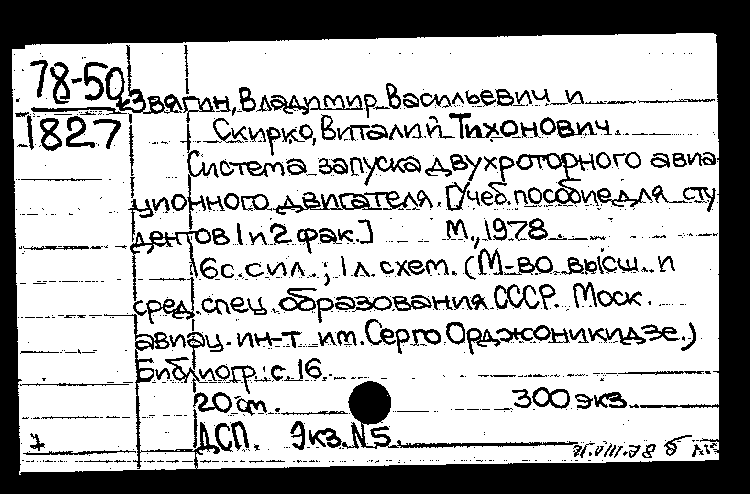 78-50
1827
Звягин, Владимир Васильевич и
Скирко, Виталий Тихонович.
Система запуска двухроторного авиа-
ционного двигателя. [Учеб. пособие для сту-
дентов 1 и 2 фак.] М., 1978.
16 с. с ил.; 1 л. схем. (М-во высш. и
сред. спец. образования СССР. Моск.
авиац. ин-т им. Серго Орджоникидзе.)
Библиогр.: с. 16.
20 см. 300 экз.
ДСП. Экз. N 5.